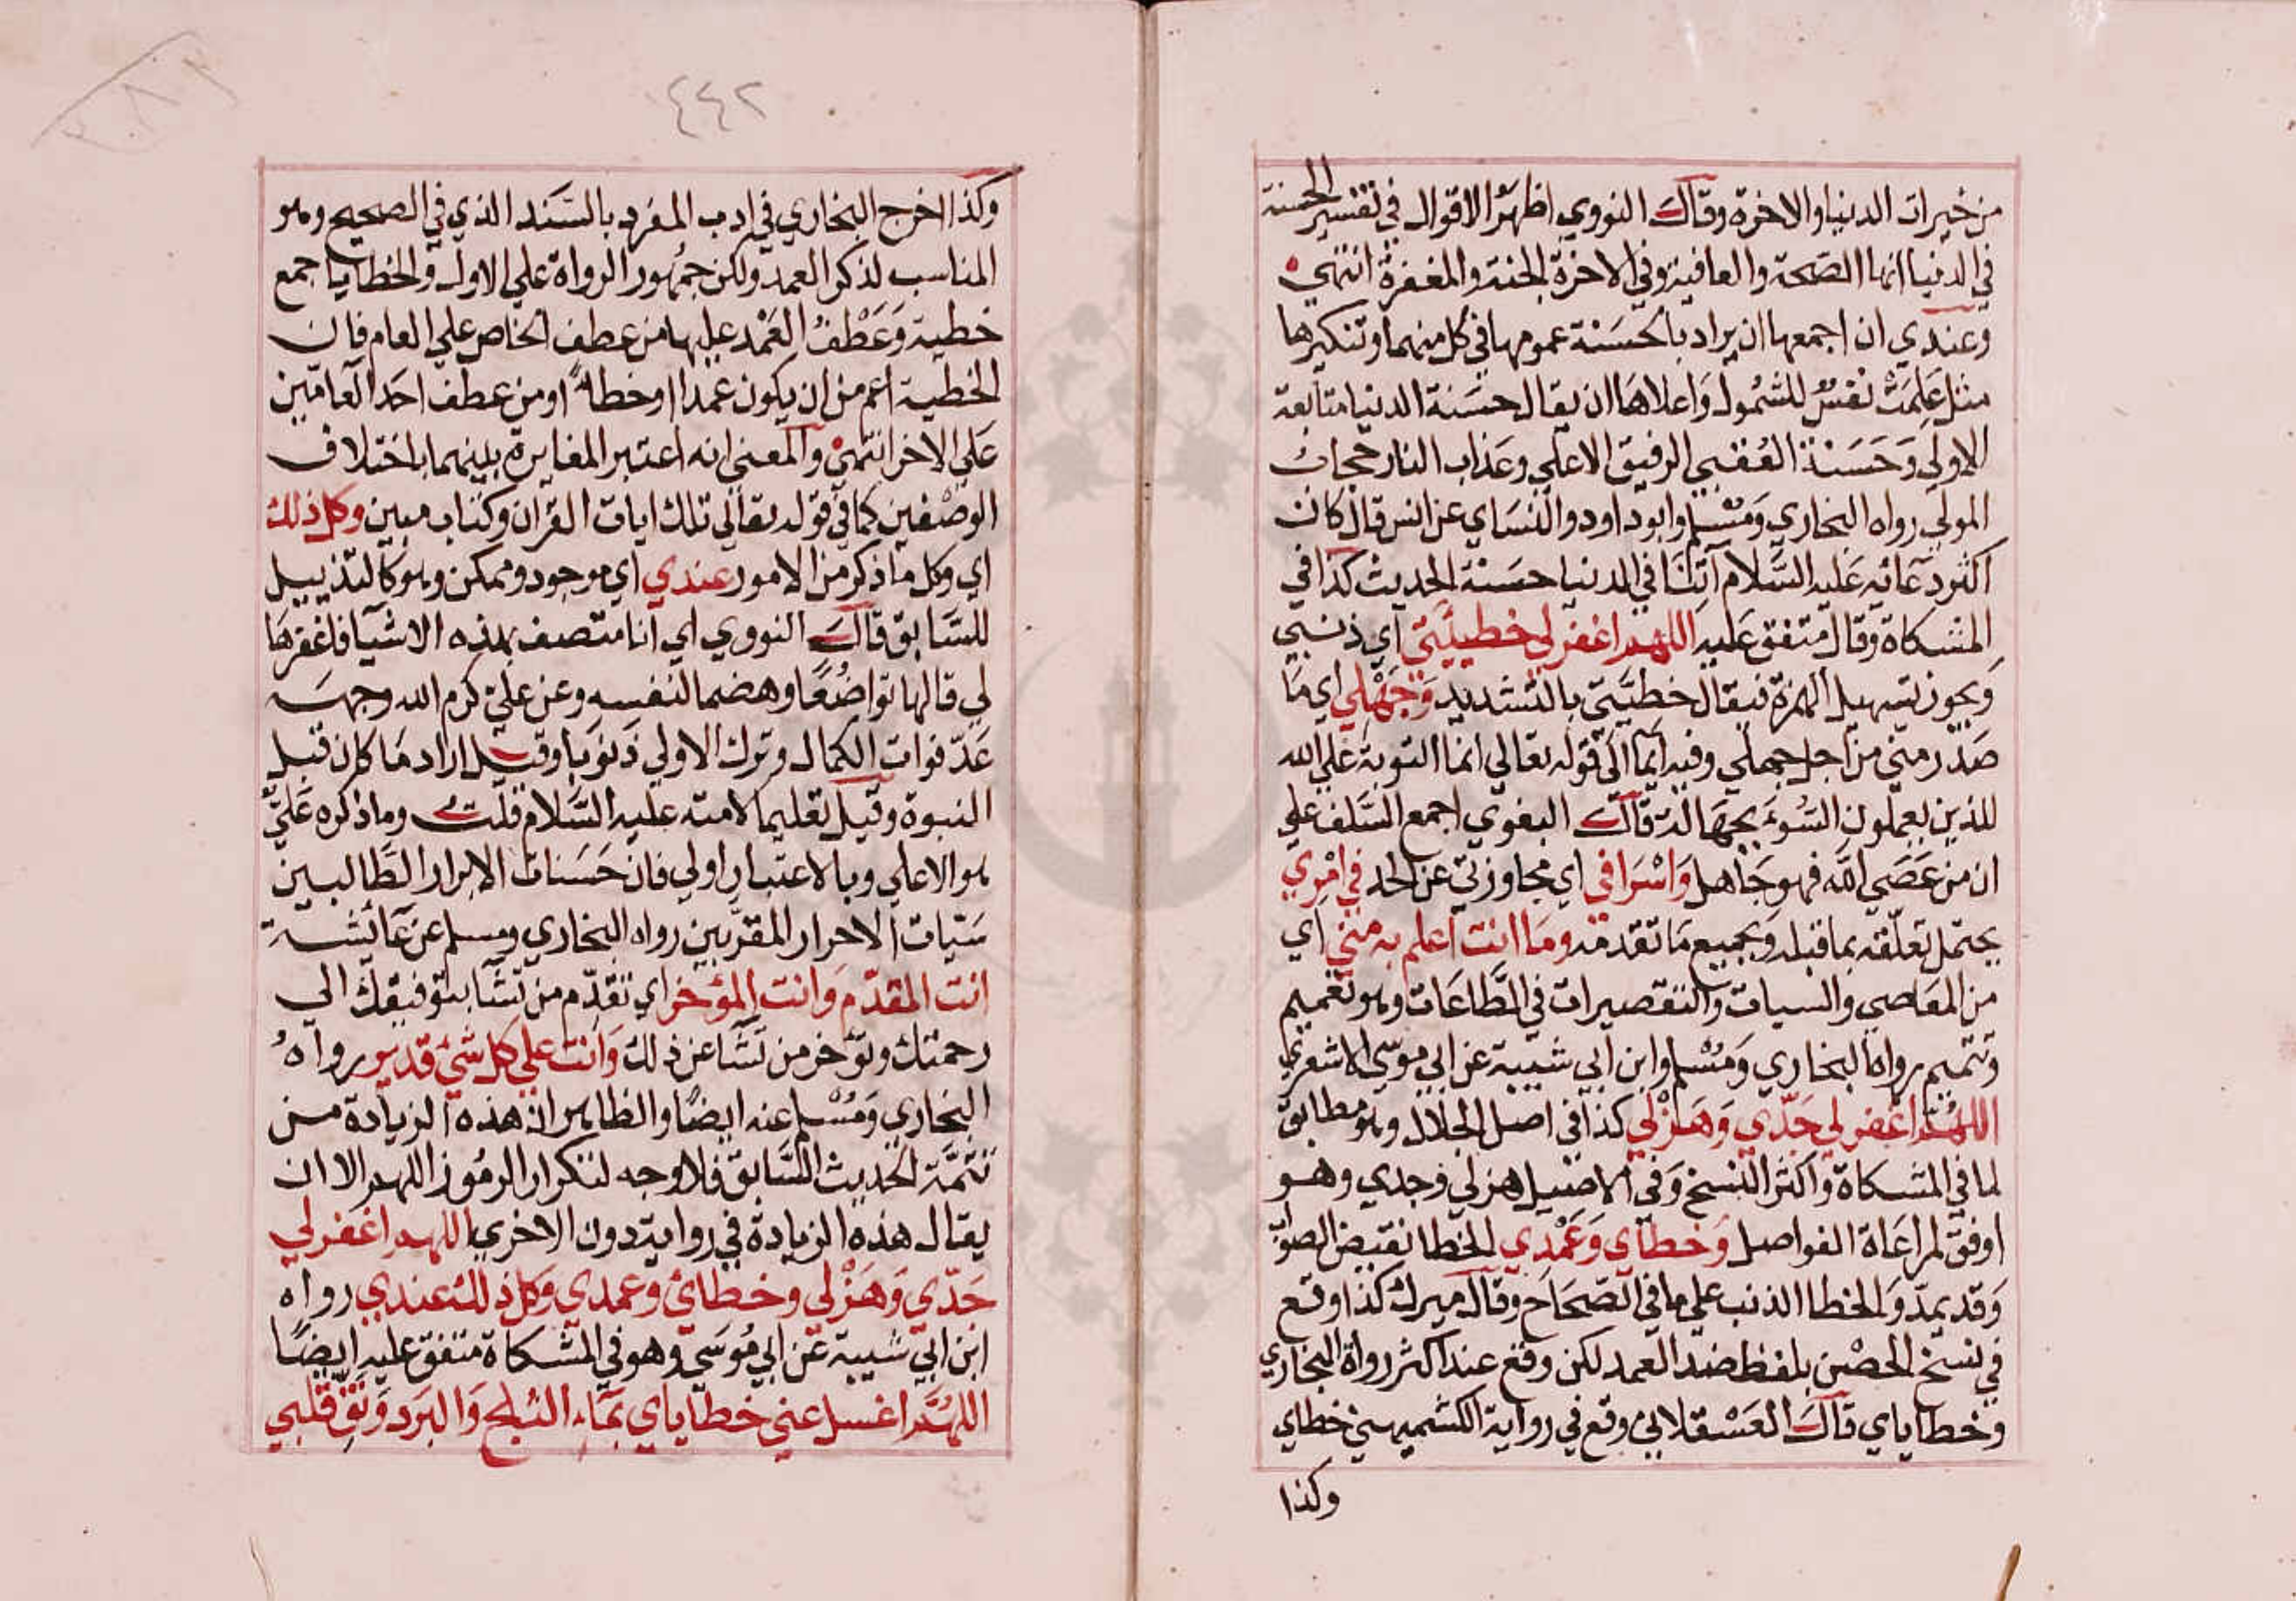 من خيرات الدنيا والاخرة وقال النووي اظهر الاقوال في تفسير الحسنة
في الدنيا انها الصحة والعافية وفي الاخرة الجنة والمغفرة انتهي
وعندي ان اجمعها ان يراد بالحسنة عمومها في كل منهما وتنكيرها
مثل علمت نفس للشمول واعلاها ان يقال حسنة الدنيا متابعة
الاولي وحسنة العقبي الرفيق الاعلي وعذاب النار حجاب
المولي رواه البخاري ومسلم وابو داود والنساي عن انس قال كان
اكثر دعائه عليه السلام آتنا في الدنيا حسنة الحديث كذا في
المشكاة وقال متفق عليه اللهم اغفر لي خطيئتي اي ذنبي
ويجوز تسهيل الهمزة فيقال خطيتي بالتشديد وجهلي اي ما
صدر مني من اجل جهلي وفيه ايما الي قوله تعالي انما التوبة علي الله
للذين يعملون السوء بجهالة قال البغوي اجمع السلف علي
ان من عصي الله فهو جاهل واسرافي اي مجاوزتي عن الحد في امري
يحتمل تعلقه بما قبله وبجميع ما تقدمه وما انت اعلم به مني اي
من المعاصي والسيات والتقصيرات في الطاعات وهو تعميم
وتتميم رواه البخاري ومسلم وابن ابي شيبة عن ابي موسي الاشعري
اللهم اغفر لي جدي وهزلي كذا في اصل الجلال وهو مطابق
لما في المشكاة واكثر النسخ وفي الاصيل هزلي وجدي وهو
اوفق لمراعاة الفواصل وخطاي وعمدي الخطا نقيض الصواب
وقد يمد والخطا الذنب علي ما في الصحاح وقال ميرك كذا وقع
في نسخ الحصن بلفظ ضد العمد لكن وقع عند اكثر رواة البخاري
وخطاياي قال العسقلاني وقع في رواية الكشميهني خطاي
وكذا
٤٤٢
وكذا اخرج البخاري في ادب المفرد بالسند الذي في الصحيح وهو
المناسب لذكر العمد ولكن جمهور الرواة علي الاول والخطايا جمع
خطية وعطف العمد عليها من عطف الخاص علي العام فان
الخطية اعم من ان يكون عمدا او خطا او من عطف احد العامين
علي الاخر انتهي والمعني انه اعتبر المغايرة بينهما باختلاف
الوصفين كما في قوله تعالي تلك ايات القران وكتاب مبين وكل ذلك
اي وكل ما ذكر من الامور عندي اي موجود وممكن وهو كالتذييل
للسابق قال النووي اي انا متصف بهذه الاشيا فاغفرها
لي قالها تواضعا وهضما لنفسه وعن علي كرم الله وجهه
عد فوات الكمال وترك الاولي ذنوبا وقيل اراد ما كان قبل
النبوة وقيل تعليما لامته عليه السلام قلت وما ذكره علي
هو الاعلي وبالاعتبار اولي فان حسنات الابرار الطالبين
سيات الاحرار المقربين رواه البخاري ومسلم عن عائشة
انت المقدم وانت المؤخر اي تقدم من تشا بتوفيقك الي
رحمتك وتؤخر من تشا عن ذلك وانت علي كل شئ قدير رواه
البخاري ومسلم عنه ايضا والظاهر ان هذه الزيادة من
تتمة الحديث السابق فلا وجه لتكرار الرموز اللهم الا ان
يقال هذه الزيادة في رواية دون الاخري اللهم اغفر لي
جدي وهزلي وخطائ وعمدي وكل ذلك عندي رواه
ابن ابي شيبة عن ابي موسي وهو في المشكاة متفق عليه ايضا
اللهم اغسل عني خطاياي بماء الثلج والبرد ونق قلبي